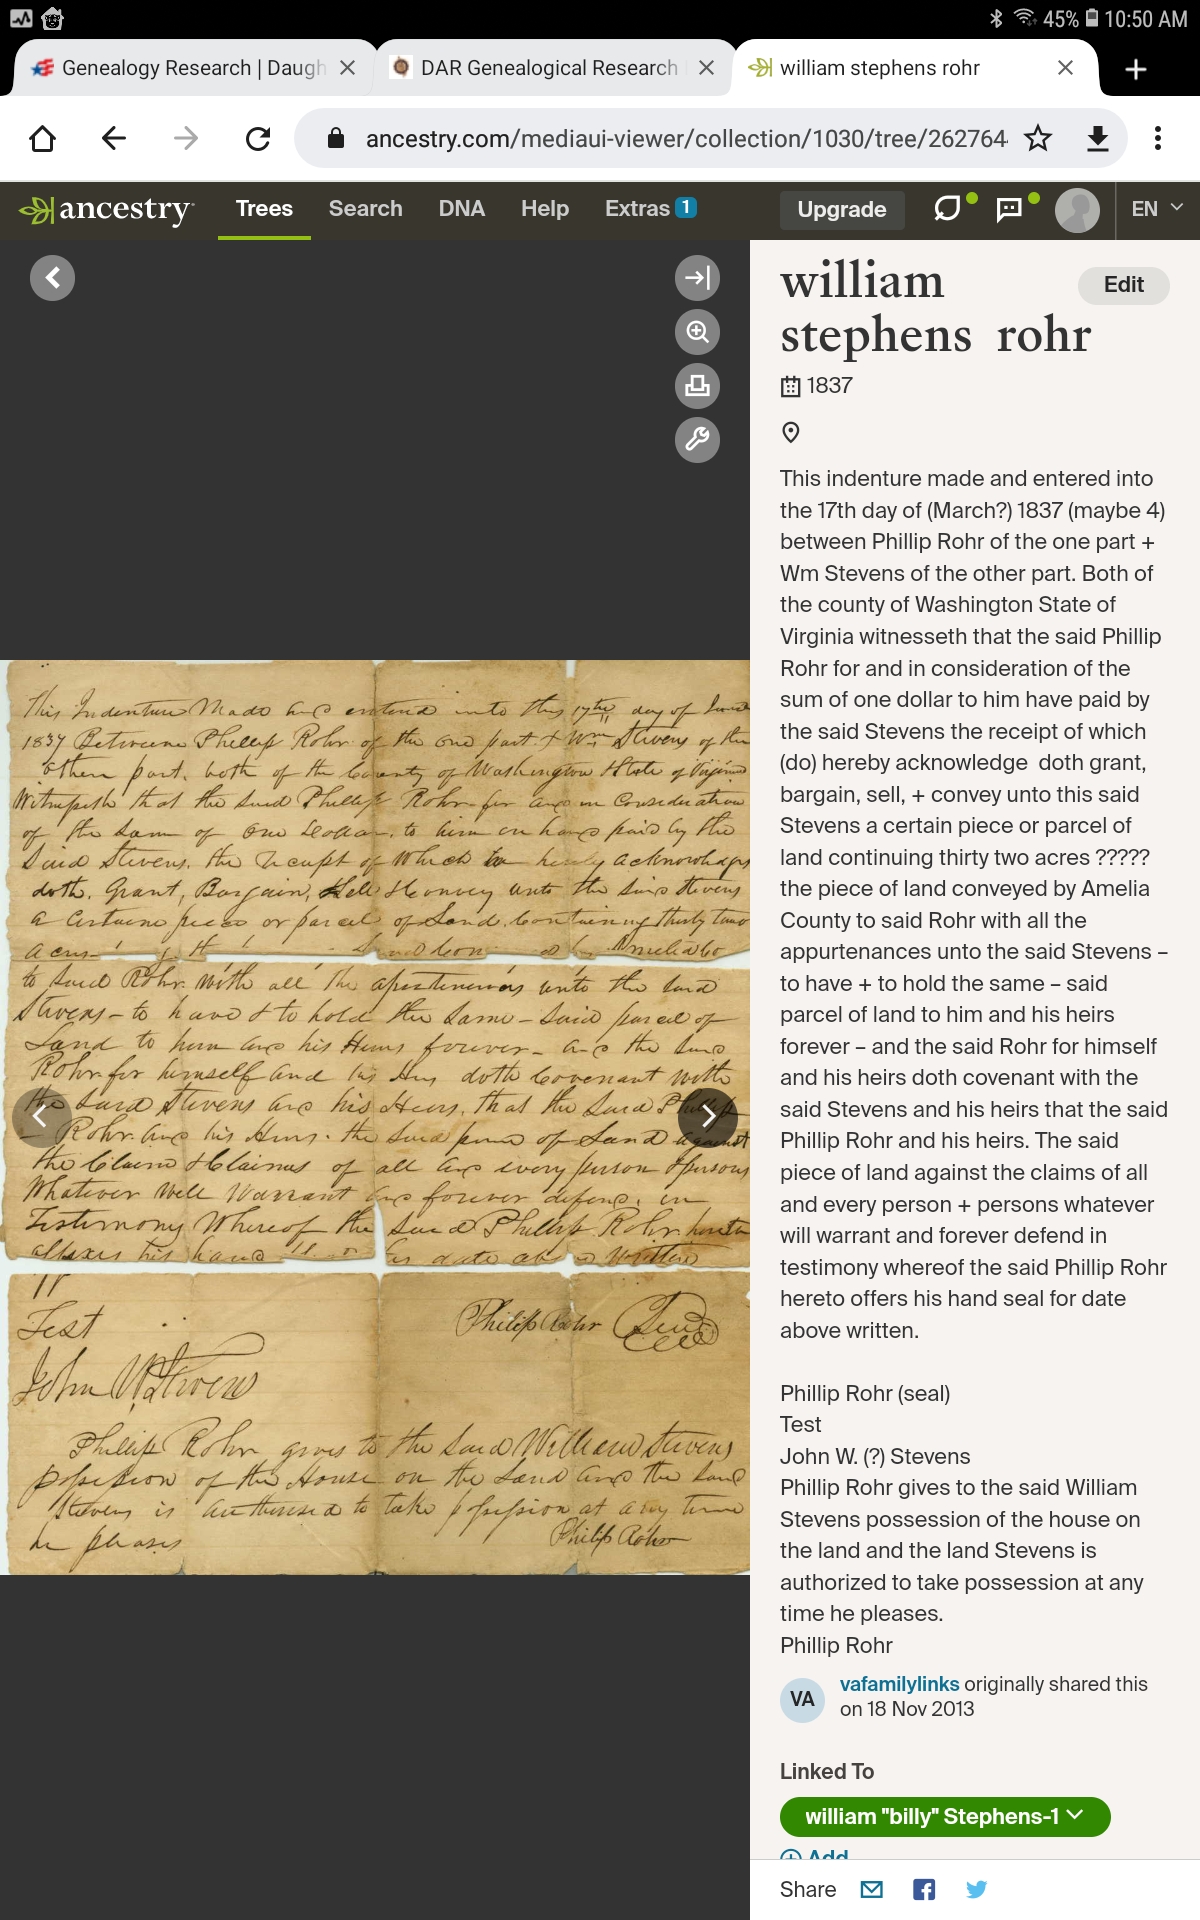 45% 10:50 AM
Genealogy Research | Daugh
DAR Genealogical Research
william stephens rohr
ancestry.com/mediaui-viewer/collection/1030/tree/262764
ancestry
Trees
Search
DNA
Help
Extras 1
Upgrade
EN
This Indenture Made and entered into this 17th day of
1837 Betweene Phillip Rohr of the one part & Wm Stivens of the
other part. both of the County of Washington State of Virginia
Witnesseth that the said Phillip Rohr for and in Consideration
of the Sum of one Dollar. to him in hand paid by the
Said Stivens. the receipt of Which hereby acknowledges
doth. Grant, Bargain, Sell & Convey unto the Said Stivens
a Certaine piece or parcel of Land. Containing thirty two
acres
to Said Rohr With all the apertinences unto the Said
Stivens – to have & to hold the Same – Said parcel of
Land to him and his Heirs forever – and the Said
Rohr for himself and his Heirs doth Covenant with
the Said Stivens and his Heirs. that the Said Phillip
Rohr and his Heirs. the Said peice of Land against
the Claim & Claims of all and every person & persons
Whatever Will Warrant and forever defend. in
Testimony Whereof the Said Phillip Rohr hereto
affixes his hand date Written
Test
Philip Rohr Seal
John W. Stivens
Phillip Rohr gives to the Said William Stivens
possession of the House on the Land and the Said
Stivens is authorised to take possession at any time
he pleases
Philip Rohr
william
stephens rohr
Edit
1837
This indenture made and entered into
the 17th day of (March?) 1837 (maybe 4)
between Phillip Rohr of the one part +
Wm Stevens of the other part. Both of
the county of Washington State of
Virginia witnesseth that the said Phillip
Rohr for and in consideration of the
sum of one dollar to him have paid by
the said Stevens the receipt of which
(do) hereby acknowledge doth grant,
bargain, sell, + convey unto this said
Stevens a certain piece or parcel of
land continuing thirty two acres ?????
the piece of land conveyed by Amelia
County to said Rohr with all the
appurtenances unto the said Stevens –
to have + to hold the same – said
parcel of land to him and his heirs
forever – and the said Rohr for himself
and his heirs doth covenant with the
said Stevens and his heirs that the said
Phillip Rohr and his heirs. The said
piece of land against the claims of all
and every person + persons whatever
will warrant and forever defend in
testimony whereof the said Phillip Rohr
hereto offers his hand seal for date
above written.
Phillip Rohr (seal)
Test
John W. (?) Stevens
Phillip Rohr gives to the said William
Stevens possession of the house on
the land and the land Stevens is
authorized to take possession at any
time he pleases.
Phillip Rohr
VA
vafamilylinks originally shared this
on 18 Nov 2013
Linked To
william "billy" Stephens-1
Add
Share